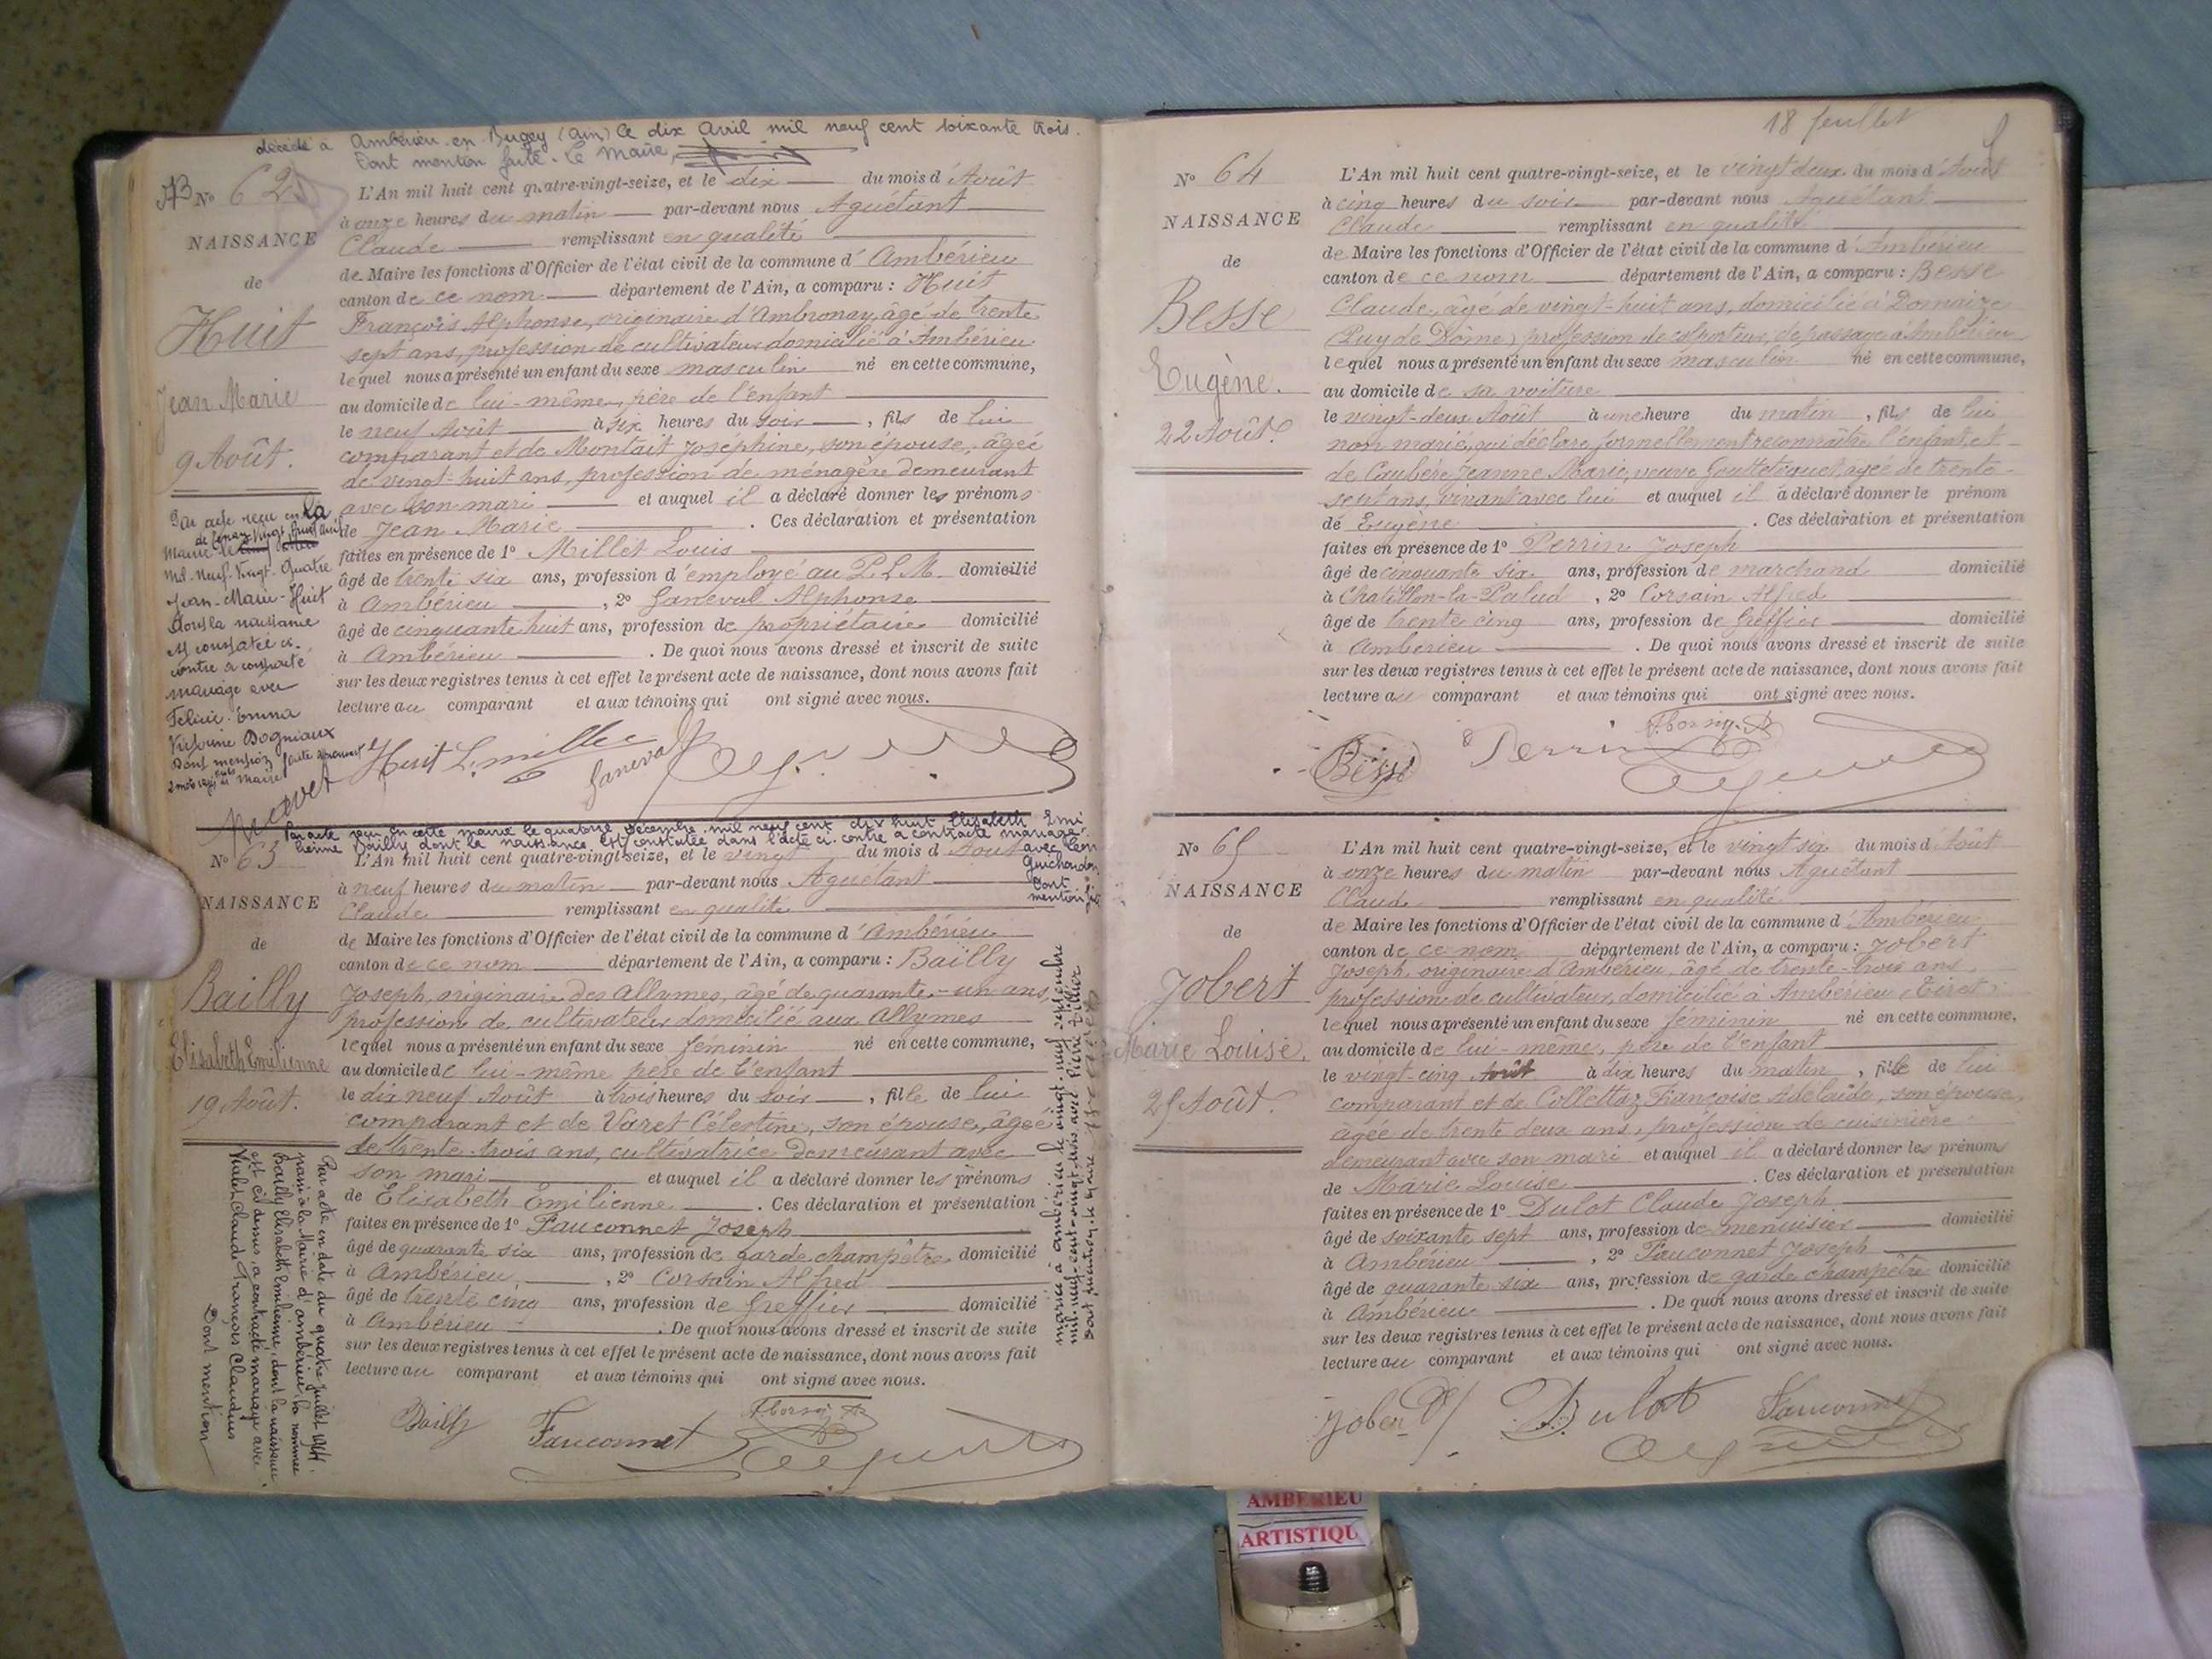 décédé à Ambérieu-en-Bugey (Ain) le dix Avril mil neuf cent soixante trois.
Dont mention faite. Le Maire,
No 62
NAISSANCE
de
Huit
Jean Marie
9 Août.
L'An mil huit cent quatre-vingt-seize, et le dix du mois d'Août
à onze heures du matin par-devant nous Aguétant
Claude remplissant en qualité
de Maire les fonctions d'Officier de l'état civil de la commune d'Ambérieu
canton de ce nom département de l'Ain, a comparu : Huit
François Alphonse, originaire d'Ambronay, âgé de trente
sept ans, profession de cultivateur domicilié à Ambérieu
lequel nous a présenté un enfant du sexe masculin né en cette commune,
au domicile de lui-même, père de l'enfant
le neuf Août à six heures du soir, fils de lui
comparant et de Montait Joséphine, son épouse, âgée
de vingt-huit ans, profession de ménagère demeurant
avec son mari et auquel il a déclaré donner les prénoms
de Jean Marie. Ces déclaration et présentation
faites en présence de 1o Millet Louis
âgé de trente six ans, profession d'employé au P.L.M. domicilié
à Ambérieu, 2o Ganeval Alphonse
âgé de cinquante huit ans, profession de propriétaire domicilié
à Ambérieu. De quoi nous avons dressé et inscrit de suite
sur les deux registres tenus à cet effet le présent acte de naissance, dont nous avons fait
lecture au comparant et aux témoins qui ont signé avec nous.
Huit L. Millet Ganeval
Par acte reçu en la
Mairie de
mil-neuf-Vingt-Quatre
Jean-Marie-Huit
dont la naissance
est constatée ci-
contre a contracté
mariage avec
Felicie-Emma
Dogniaux
Dont mention faite
Maire
Par acte reçu en cette mairie le quatorze Décembre mil neuf cent dix huit Elisabeth Emi
lienne Bailly dont la naissance est constatée dans l'acte ci-contre a contracté mariage
avec Léon
Guichardon
Dont
mention
No 63
NAISSANCE
de
Bailly
Elisabeth Emilienne
19 Août.
L'An mil huit cent quatre-vingt-seize, et le vingt du mois d'Août
à neuf heures du matin par-devant nous Aguétant
Claude remplissant en qualité
de Maire les fonctions d'Officier de l'état civil de la commune d'Ambérieu
canton de ce nom département de l'Ain, a comparu : Bailly
Joseph, originaire des Allymes, âgé de quarante-un ans,
profession de cultivateur domicilié aux Allymes
lequel nous a présenté un enfant du sexe féminin né en cette commune,
au domicile de lui-même père de l'enfant
le dix neuf Août à trois heures du soir, fille de lui
comparant et de Varet Célestine, son épouse, âgée
de trente-trois ans, cultivatrice demeurant avec
son mari et auquel il a déclaré donner les prénoms
de Elisabeth Emilienne. Ces déclaration et présentation
faites en présence de 1o Fauconnet Joseph
âgé de quarante six ans, profession de garde champêtre domicilié
à Ambérieu, 2o Corsain Alfred
âgé de trente cinq ans, profession de Greffier domicilié
à Ambérieu. De quoi nous avons dressé et inscrit de suite
sur les deux registres tenus à cet effet le présent acte de naissance, dont nous avons fait
lecture au comparant et aux témoins qui ont signé avec nous.
Bailly Fauconnet
Par acte en date du quatre juillet
passé à la Mairie d'Ambérieu, la nommée
Bailly Elisabeth Emilienne, dont la naissance
est ci-dessus, a contracté mariage avec
Vialet Claude François Claudius
Dont mention
mariée à Ambérieu le vingt-neuf septembre
mil-neuf-cent-vingt-trois avec
Dont mention, le Maire
18 feuillet
No 64
NAISSANCE
de
Besse
Eugène.
22 Août.
L'An mil huit cent quatre-vingt-seize, et le vingt deux du mois d'Août
à cinq heures du soir par-devant nous Aguétant
Claude remplissant en qualité
de Maire les fonctions d'Officier de l'état civil de la commune d'Ambérieu
canton de ce nom département de l'Ain, a comparu : Besse
Claude, âgé de vingt-huit ans, domicilié à Domaize
(Puy de Dôme) profession de colporteur, de passage à Ambérieu
lequel nous a présenté un enfant du sexe masculin né en cette commune,
au domicile de sa voiture
le vingt-deux Août à une heure du matin, fils de lui
non marié, qui déclare formellement reconnaître l'enfant, et
de Caubère Jeanne Marie, veuve âgée de trente
sept ans, vivant avec lui et auquel il a déclaré donner le prénom
de Eugène. Ces déclaration et présentation
faites en présence de 1o Perrin Joseph
âgé de cinquante six ans, profession de marchand domicilié
à Chatillon-la-Palud, 2o Corsain Alfred
âgé de trente cinq ans, profession de Greffier domicilié
à Ambérieu. De quoi nous avons dressé et inscrit de suite
sur les deux registres tenus à cet effet le présent acte de naissance, dont nous avons fait
lecture au comparant et aux témoins qui ont signé avec nous.
Besse Perrin
No 65
NAISSANCE
de
Jobert
Marie Louise.
25 Août.
L'An mil huit cent quatre-vingt-seize, et le vingt six du mois d'Août
à onze heures du matin par-devant nous Aguétant
Claude remplissant en qualité
de Maire les fonctions d'Officier de l'état civil de la commune d'Ambérieu
canton de ce nom département de l'Ain, a comparu : Jobert
Joseph, originaire d'Ambérieu, âgé de trente-trois ans,
profession de cultivateur, domicilié à Ambérieu, Tiret
lequel nous a présenté un enfant du sexe féminin né en cette commune,
au domicile de lui-même, père de l'enfant
le vingt-cinq Août à dix heures du matin, fille de lui
comparant et de Collettaz Françoise Adelaïde, son épouse,
âgée de trente deux ans, profession de cuisinière
demeurant avec son mari et auquel il a déclaré donner les prénoms
de Marie Louise. Ces déclaration et présentation
faites en présence de 1o Dulot Claude Joseph
âgé de soixante sept ans, profession de menuisier domicilié
à Ambérieu, 2o Fauconnet Joseph
âgé de quarante six ans, profession de garde champêtre domicilié
à Ambérieu. De quoi nous avons dressé et inscrit de suite
sur les deux registres tenus à cet effet le présent acte de naissance, dont nous avons fait
lecture au comparant et aux témoins qui ont signé avec nous.
Jobert Dulot Fauconnet
AMBERIEU
ARTISTIQU